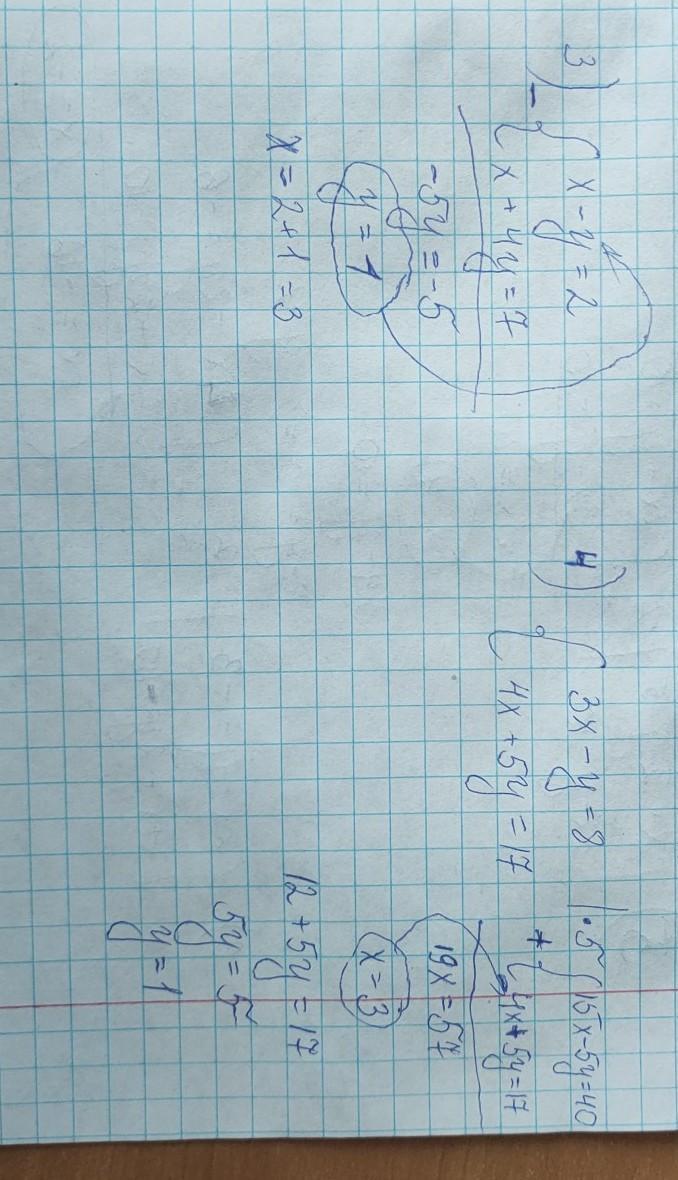 3)
- { x - y = 2
x + 4y = 7
-5y = -5
y = 1
x = 2 + 1 = 3
4)
{ 3x - y = 8 | · 5
4x + 5y = 17
+ { 15x - 5y = 40
4x + 5y = 17
19x = 57
x = 3
12 + 5y = 17
5y = 5
y = 1